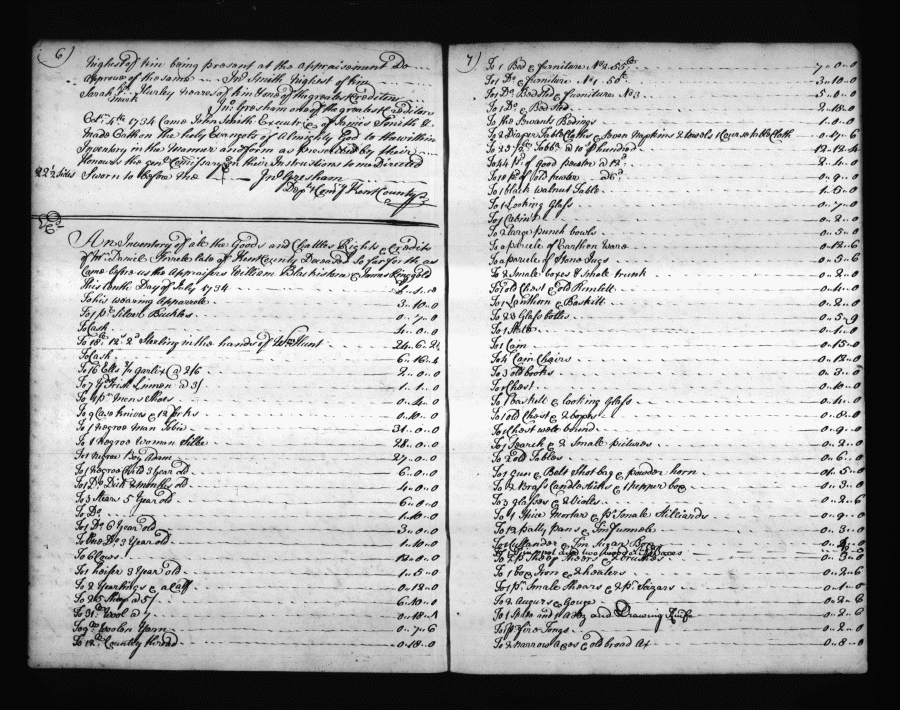 6)
highest of kin being present at the appraisement Do
approve of the same Jno Smith highest of kin
Sarah Hurley nearest of kin one of the greatest Creditors
mark
Jno Gresham one of the greatest Creditors
Octr 4th 1734 Came John Smith Execut of James Smith &
made Oath on the holy Evangels of Almighty God to the within
Inventory in the manner and form as prescribed by their
Honours the Genl Comissary of their Instructions to me Directed
22 1/2 Sides Sworn to before me Jno Gresham
Depy Comy Kent County
An Inventory of all the Goods and Chattles Rights & Credits
of Mr Daniel late of Kent County Deceased So far forth as
Came before us the Appraisers William Blackiston & James Ringgold
this tenth Day of July 1734
To his wearing Apparrele 3..10..0
To 1 pr Silver Buckles 0..7..0
To Cash 4..0..0
To 18 12s 2d Sterling in the hands of Wm Hunt 24..6..2½
To Cash 6..16..4
To 16 Ells ¾ garlix @ 2/6 2..0..0
To 7 yds Irish Linnen @ 3/ 1..1..0
To 1 pr mens Shoes 0..4..0
To 9 Case Knives & 12 forks 0..10..0
To 1 negroe man 31..0..0
To 1 negroe woman 28..0..0
To 1 negroe Boy Adam 27..0..0
To 1 negroe Child 3 Year old 6..0..0
To 1 Do Dick 2 months old 4..0..0
To 3 Steers 5 Year old 6..0..0
To Do 1..10..0
To 1 Do 6 Year old 3..0..0
To One Do 3 Year old 1..10..0
To 6 Cows 12..0..0
To 1 heifer 3 Year old 1..5..0
To 2 Yearlings & a Calf 0..12..0
To 26 Sheep @ 5/ 6..10..0
To Wool 0..18..1
To 9 Woolen Yarn 0..7..6
To 12 Country thread 0..18..0
7)
To 1 Bed & furniture No 2 55lb 7..0..0
To 1 Do & furniture No 1 50lb 3..10..0
To 1 Do Bedsted & furniture No 3 5..0..0
To 1 Do & Bedsted 2..10..0
To the Servants Bedings 1..0..0
To 2 Diaper Table Cloths & Seven Napkins & towels 1 Course table Cloth 0..17..6
12..12..4
To 44 lb of Good pewter @ 12d 2..4..0
To 18 lb of old pewter @ 6d 0..9..0
To 1 black walnut Table 1..5..0
To 1 Looking Glass 0..7..0
To 1 Cabinet 0..2..0
To 2 large punch bowls 0..5..0
To a parcele of Earthen ware 0..12..6
To a parcele of Stone Jugs 0..5..6
To 2 Small boxes & 1 whole trunk 0..2..0
To 1 old Chest & old Runlett 0..4..0
To 1 Lanthorn & Baskitt 0..2..0
To 23 Glass bottles 0..5..9
To 1 Skillet 0..1..0
To 1 Cain 0..15..0
To 4 Cain Chairs 0..12..0
To 3 old books 0..3..0
To 1 Chest 0..10..0
To 1 baskett & looking Glass 0..4..0
To 1 old Chest & 2 boxes 0..8..0
To 1 Chest well bound 0..9..0
To 1 & 2 Small pictures 0..2..0
To 2 old Tables 0..6..0
To 1 Gun & Belt Shot bag & powder horn 01..5..0
To 2 Brass Candlesticks & 1 pepper box 0..3..0
To 3 glasses & 2 violls 0..2..6
To 1 Spice Mortar & pr Small Stilliards 0..9..0
To 12 patty pans & Tin funnele 0..3..0
To 1 Cullander & Tin Sugar Box
To 2 pr Sheep Shears & 2 brushes 0..3..0
To 1 box Iron & 2 heaters 0..2..6
To 1 pr Small Shears & 2 pr Scizars 0..1..0
To 2 Augurs & Gouge 0..2..6
To 1 and 1 Adz and Drawing Knife 0..2..6
To 1 pr fire Tongs 0..2..0
To 2 narrow axes & old broad Ax 0..8..0